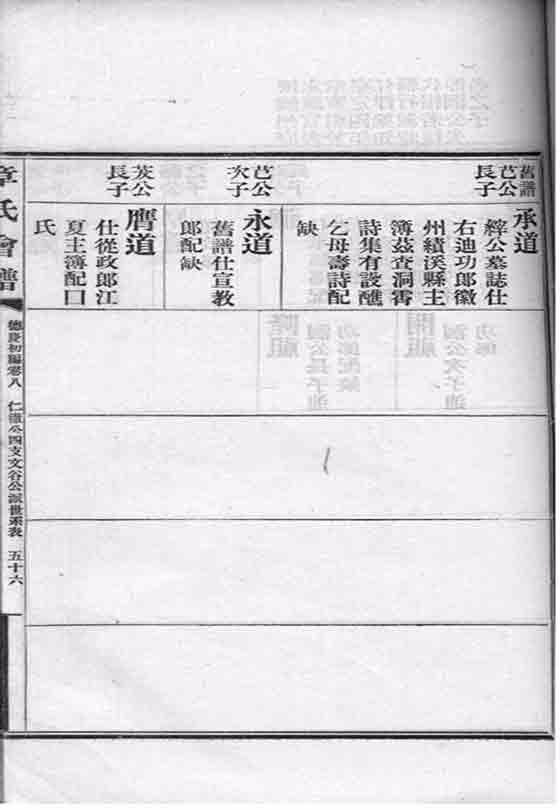 舊譜
芑公
長子
承道
縡公墓誌仕
右迪功郎徽
州績溪縣主
簿茲查洞霄
詩集有設醮
乞母壽詩配
缺
芑公
次子
永道
舊譜仕宣教
郎配缺
芨公
長子
膺道
仕從政郎江
夏主簿配囗
氏
章氏會譜
德慶初編卷八
仁徹公四支文谷公派世系表
五十六